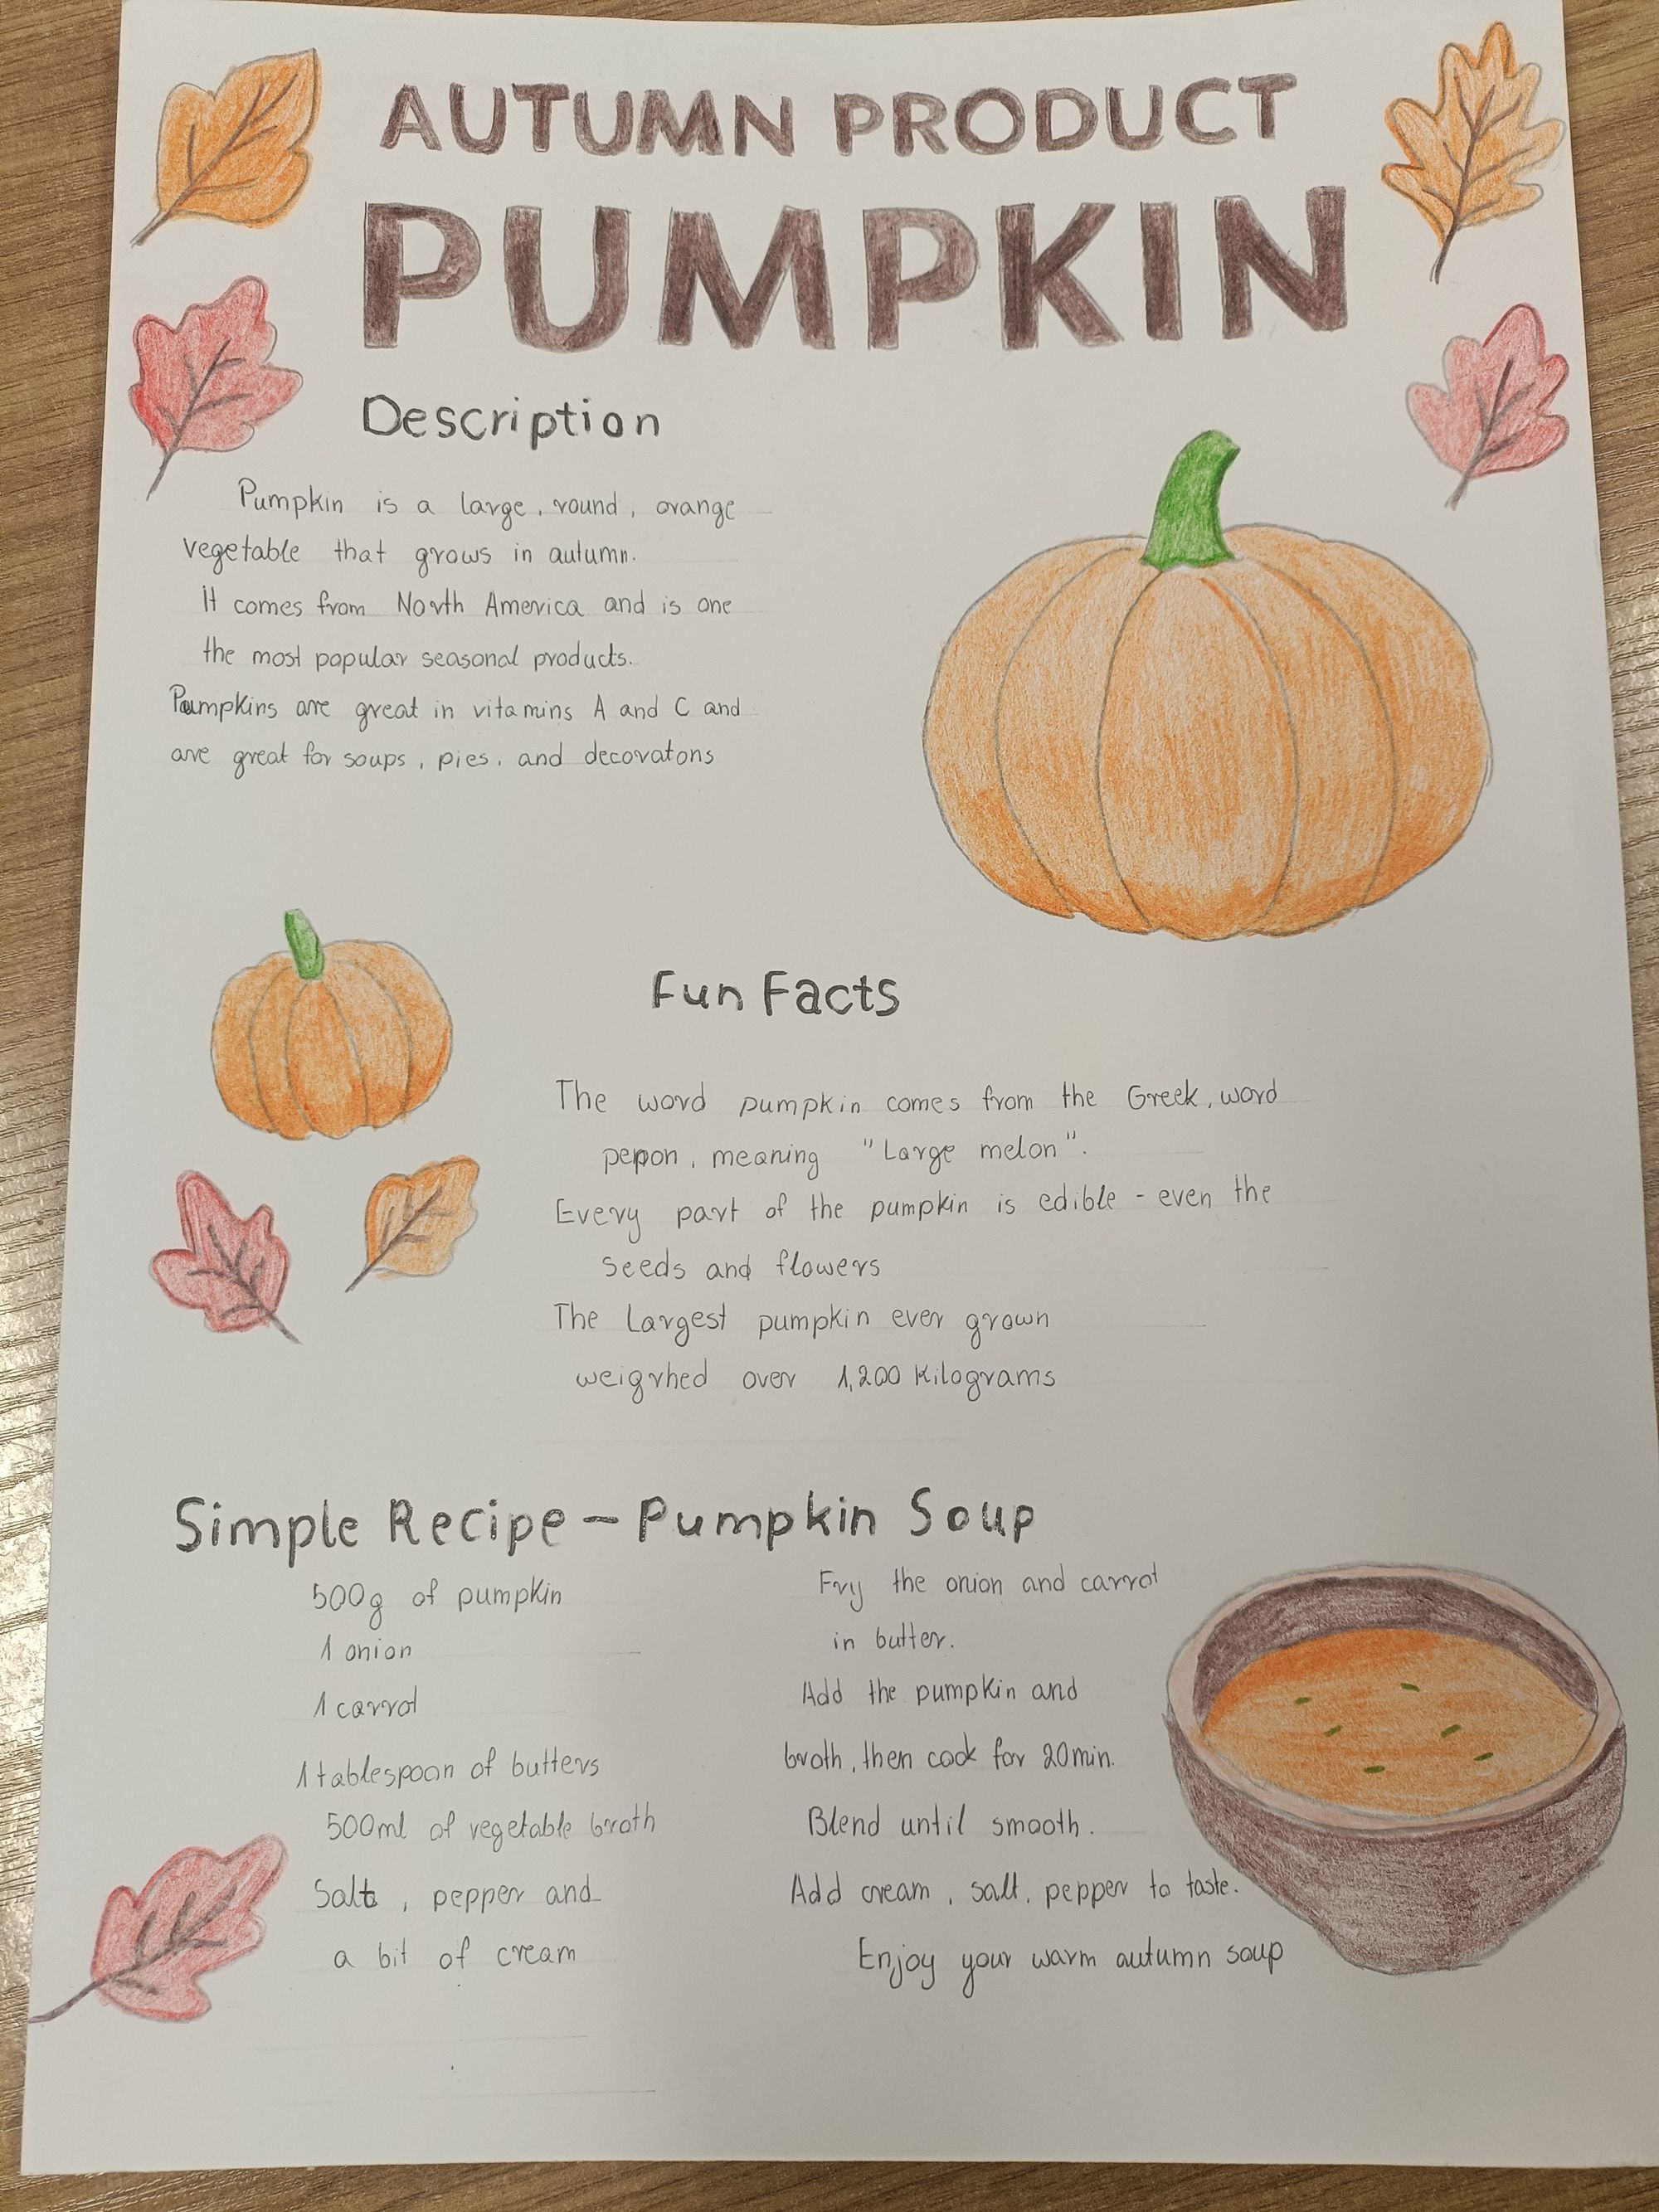 AUTUMN PRODUCT
PUMPKIN
Description
Pumpkin is a large, round, orange
vegetable that grows in autumn.
It comes from North America and is one
the most popular seasonal products.
Pumpkins are great in vitamins A and C and
are great for soups, pies, and decoratons
Fun Facts
The word pumpkin comes from the Greek, word
pepon, meaning "Large melon".
Every part of the pumpkin is edible - even the
seeds and flowers
The Largest pumpkin ever grown
weigrhed over 1,200 Kilograms
Simple Recipe - Pumpkin Soup
500g of pumpkin
1 onion
1 carrot
1 tablespoon of butters
500ml of vegetable broth
Salt, pepper and
a bit of cream
Fry the onion and carrot
in butter.
Add the pumpkin and
broth, then cook for 20min.
Blend until smooth.
Add cream, salt, pepper to taste.
Enjoy your warm autumn soup